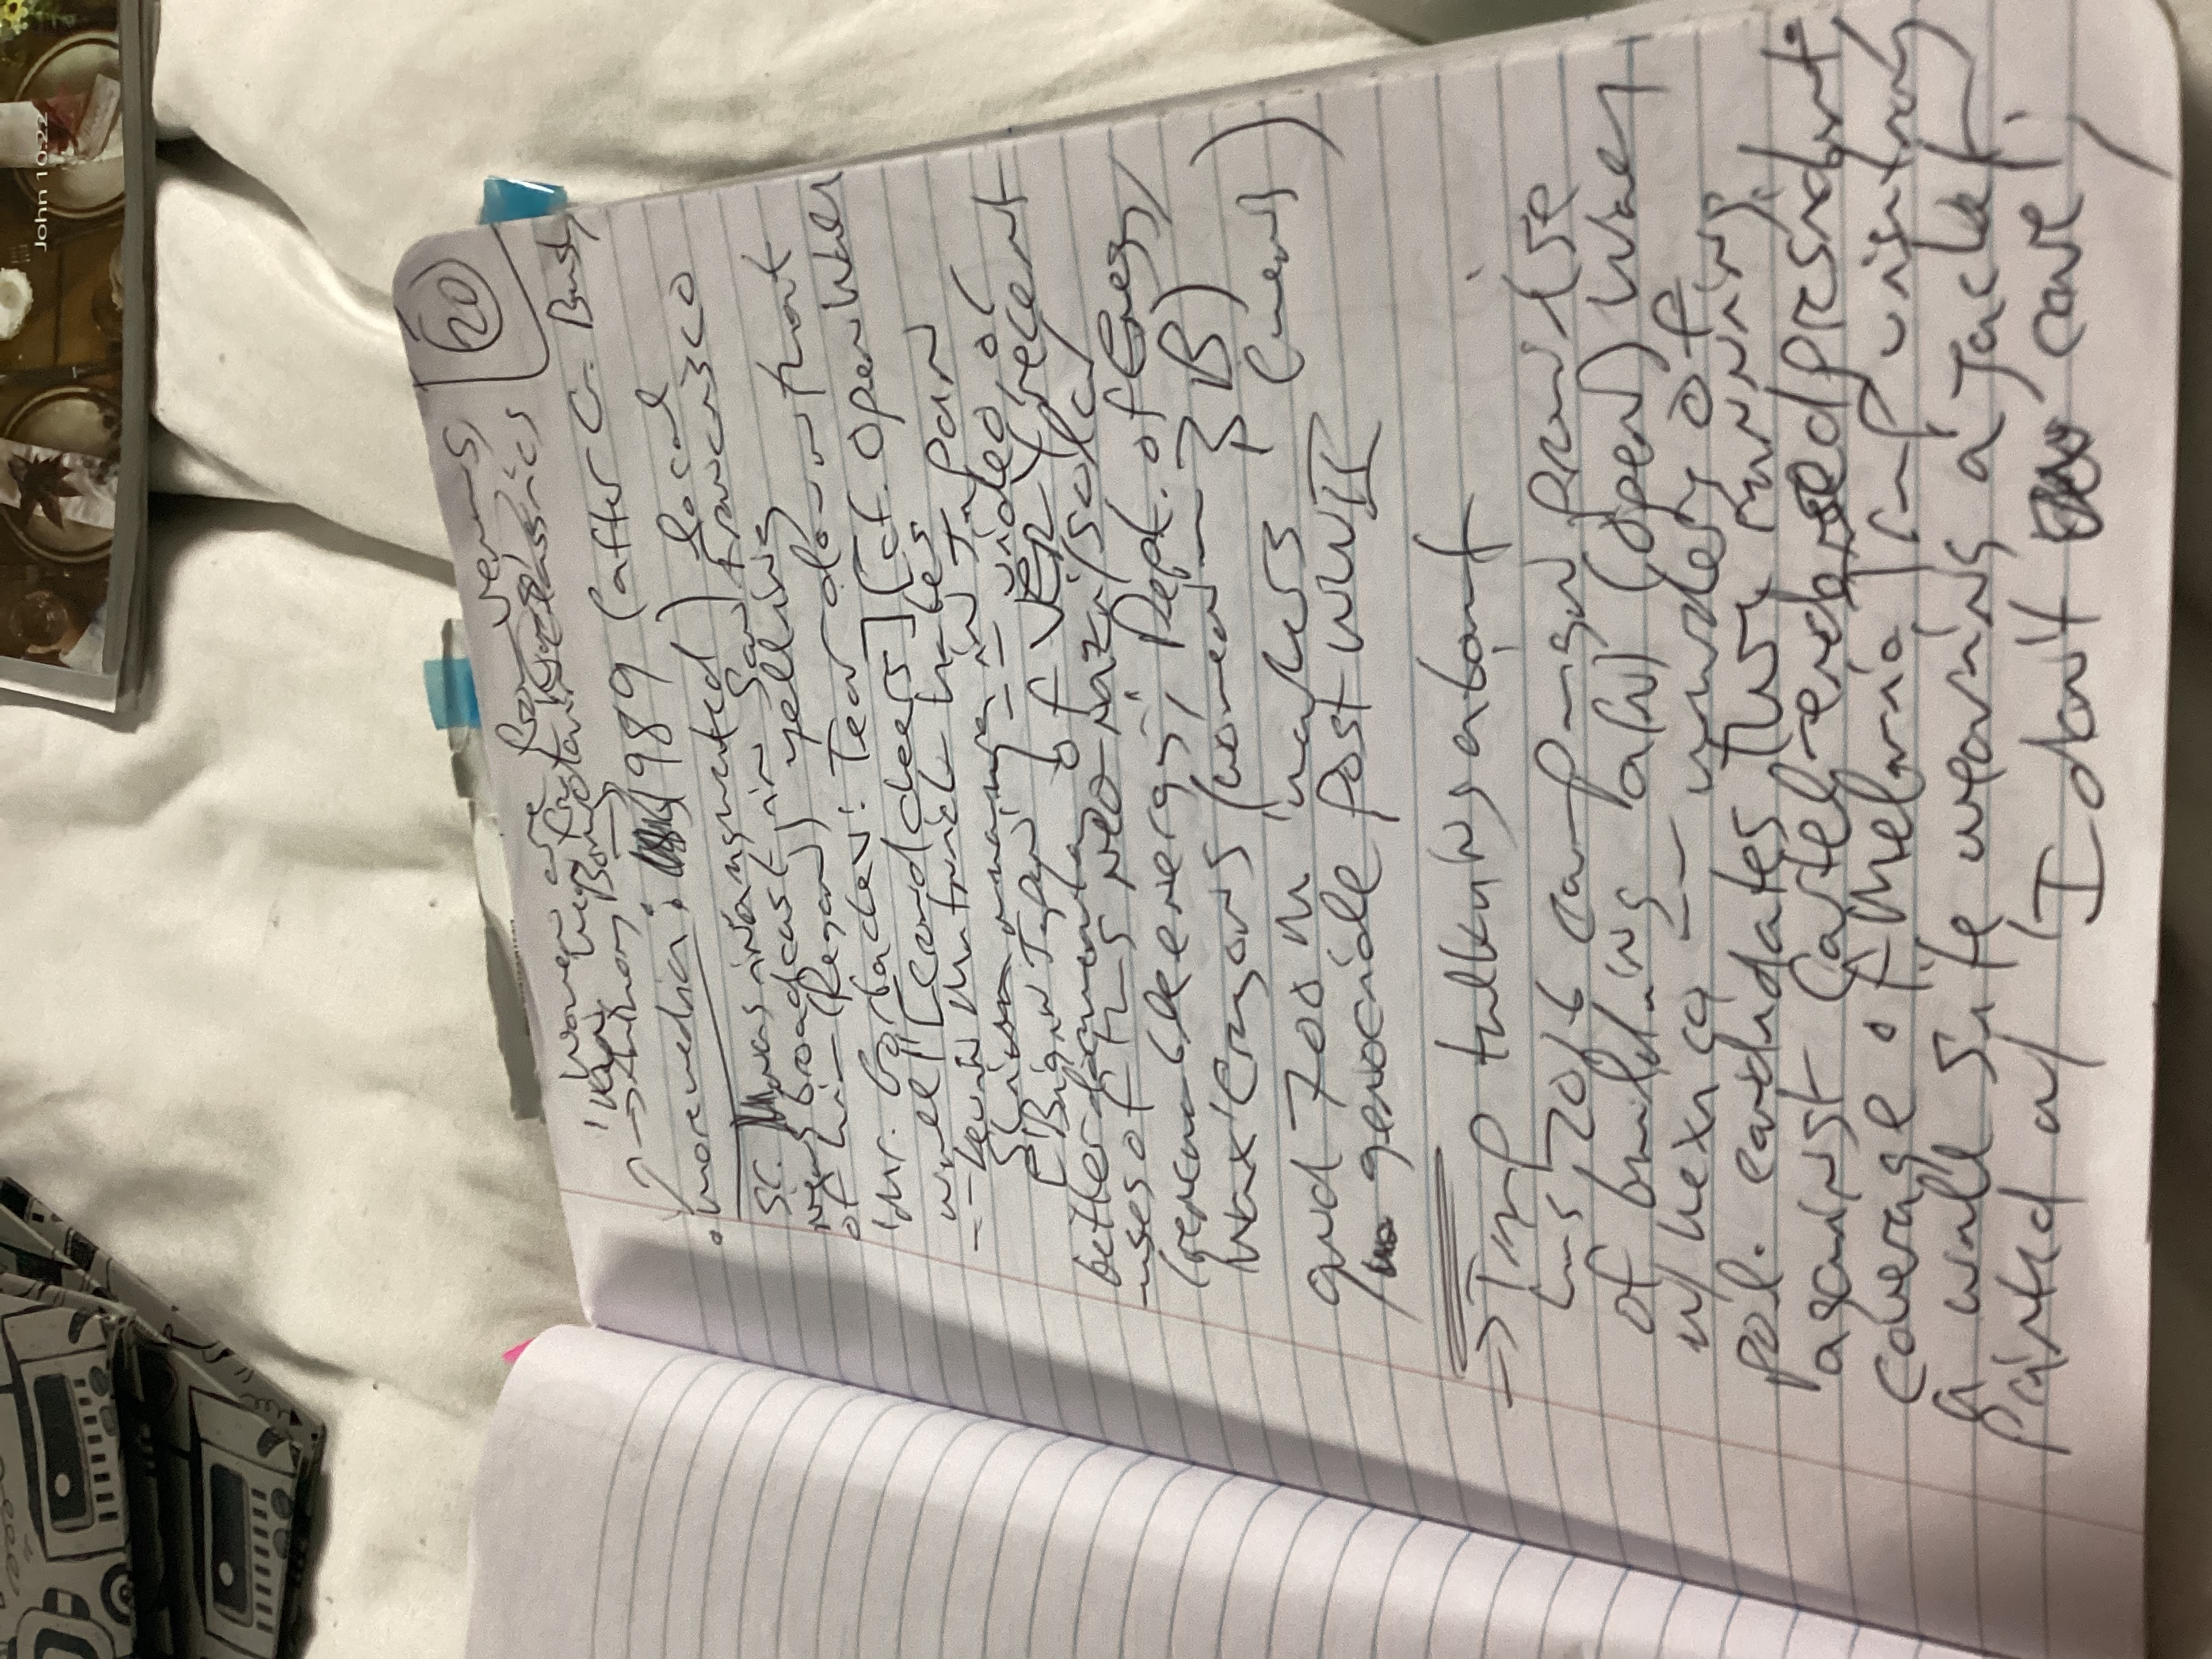 John 10:22
20
Women are from Venus,
men
→ Anthony Bourdain classics
• more media: 1989 (after G. Bush
sr. was inaugurated) local
news broadcast in San Francisco
of him (Regan) yelling
'Mr. Gorbachev: Tear down that
wall!' [crowd cheers] [cf. Open Wall
-- Kevin hates
manga in Japan
['Big in Japan'] -- video, or
better of VERY recent
uses of this neo-nazi/solar
(renewable energy; Dept. of Energy
wax crayons (women — 3 B)
and 700 M makers (men)
genocide post WWII
→ Trmp talking about
his 2016 campaign promise
of building a(n) (open) wall
w/ Mexico -- murders of
pol. candidates running
against Cartel-endorsed president;
coverage of Melania Trmp visiting
a wall site wearing a jacket
painted w/ 'I don't care';